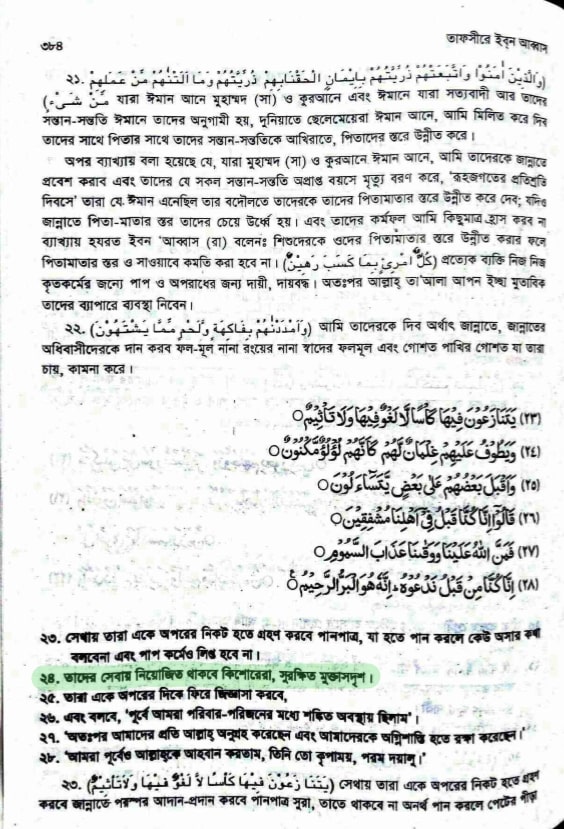 ৩৮৪ তাফসীরে ইবন আব্বাস
২১. (وَالَّذِيْنَ اٰمَنُوْا وَاتَّبَعَتْهُمْ ذُرِّيَّتُهُمْ بِاِيْمَانٍ اَلْحَقْنَابِهِمْ ذُرِّيَّتَهُمْ وَمَا اَلَتْنٰهُمْ مِّنْ عَمَلِهِمْ
مِّنْ شَىْءٍ) যারা ঈমান আনে মুহাম্মদ (সা) ও কুরআনে এবং ঈমানে যারা সত্যবাদী আর তাদের
সন্তান-সন্ততি ঈমানে তাদের অনুগামী হয়, দুনিয়াতে ছেলেমেয়েরা ঈমান আনে, আমি মিলিত করে দিব
তাদের সাথে পিতার সাথে তাদের সন্তান-সন্ততিকে আখিরাতে, পিতাদের স্তরে উন্নীত করে।
অপর ব্যাখ্যায় বলা হয়েছে যে, যারা মুহাম্মদ (সা) ও কুরআনে ঈমান আনে, আমি তাদেরকে জান্নাতে
প্রবেশ করাব এবং তাদের যে সকল সন্তান-সন্ততি অপ্রাপ্ত বয়সে মৃত্যু বরণ করে, 'রূহজগতের প্রতিশ্রুতি
দিবসে' তারা যে ঈমান এনেছিল তার বদৌলতে তাদেরকে তাদের পিতামাতার স্তরে উন্নীত করে দেব; যদিও
জান্নাতে পিতা-মাতার স্তর তাদের চেয়ে উর্ধ্বে হয়। এবং তাদের কর্মফল আমি কিছুমাত্র হ্রাস করব না
ব্যাখ্যায় হযরত ইবন 'আব্বাস (রা) বলেনঃ শিশুদেরকে ওদের পিতামাতার স্তরে উন্নীত করার ফলে
পিতামাতার স্তর ও সাওয়াবে কমতি করা হবে না। (كُلُّ امْرِئٍ بِمَا كَسَبَ رَهِيْنٌ) প্রত্যেক ব্যক্তি নিজ নিজ
কৃতকর্মের জন্যে পাপ ও অপরাধের জন্য দায়ী, দায়বদ্ধ। অতঃপর আল্লাহ্ তা'আলা আপন ইচ্ছা মুতাবিক
তাদের ব্যাপারে ব্যবস্থা নিবেন।
২২. (وَاَمْدَدْنٰهُمْ بِفَاكِهَةٍ وَّلَحْمٍ مِّمَّا يَشْتَهُوْنَ) আমি তাদেরকে দিব অর্থাৎ জান্নাতে, জান্নাতের
অধিবাসীদেরকে দান করব ফল-মূল নানা রংয়ের নানা স্বাদের ফলমূল এবং গোশত পাখির গোশত যা তারা
চায়, কামনা করে।
(٢٣) يَتَنَازَعُوْنَ فِيْهَا كَاْسًا لَّا لَغْوٌ فِيْهَا وَلَا تَاْثِيْمٌ ○
(٢٤) وَيَطُوْفُ عَلَيْهِمْ غِلْمَانٌ لَّهُمْ كَاَنَّهُمْ لُؤْلُؤٌ مَّكْنُوْنٌ ○
(٢٥) وَاَقْبَلَ بَعْضُهُمْ عَلٰى بَعْضٍ يَّتَسَآءَلُوْنَ ○
(٢٦) قَالُوْٓا اِنَّا كُنَّا قَبْلُ فِيْٓ اَهْلِنَا مُشْفِقِيْنَ ○
(٢٧) فَمَنَّ اللّٰهُ عَلَيْنَا وَوَقٰنَا عَذَابَ السَّمُوْمِ ○
(٢٨) اِنَّا كُنَّا مِنْ قَبْلُ نَدْعُوْهُ ۗ اِنَّهٗ هُوَ الْبَرُّ الرَّحِيْمُ ○
২৩. সেথায় তারা একে অপরের নিকট হতে গ্রহণ করবে পানপাত্র, যা হতে পান করলে কেউ অসার কথা
বলবেনা এবং পাপ কর্মেও লিপ্ত হবে না।
২৪. তাদের সেবায় নিয়োজিত থাকবে কিশোরেরা, সুরক্ষিত মুক্তাসদৃশ।
২৫. তারা একে অপরের দিকে ফিরে জিজ্ঞাসা করবে,
২৬. এবং বলবে, 'পূর্বে আমরা পরিবার-পরিজনের মধ্যে শঙ্কিত অবস্থায় ছিলাম'।
২৭. 'অতঃপর আমাদের প্রতি আল্লাহ্ অনুগ্রহ করেছেন এবং আমাদেরকে অগ্নিশাস্তি হতে রক্ষা করেছেন।'
২৮. 'আমরা পূর্বেও আল্লাহকে আহবান করতাম, তিনি তো কৃপাময়, পরম দয়ালু।'
২৩. (يَتَنَازَعُوْنَ فِيْهَا كَاْسًا لَّا لَغْوٌ فِيْهَا وَلَاتَاْثِيْمٌ) সেথায় তারা একে অপরের নিকট হতে গ্রহণ
করবে জান্নাতে পরস্পর আদান-প্রদান করবে পানপাত্র সুরা, তাতে থাকবে না অনর্থ পান করলে পেটের পীড়া